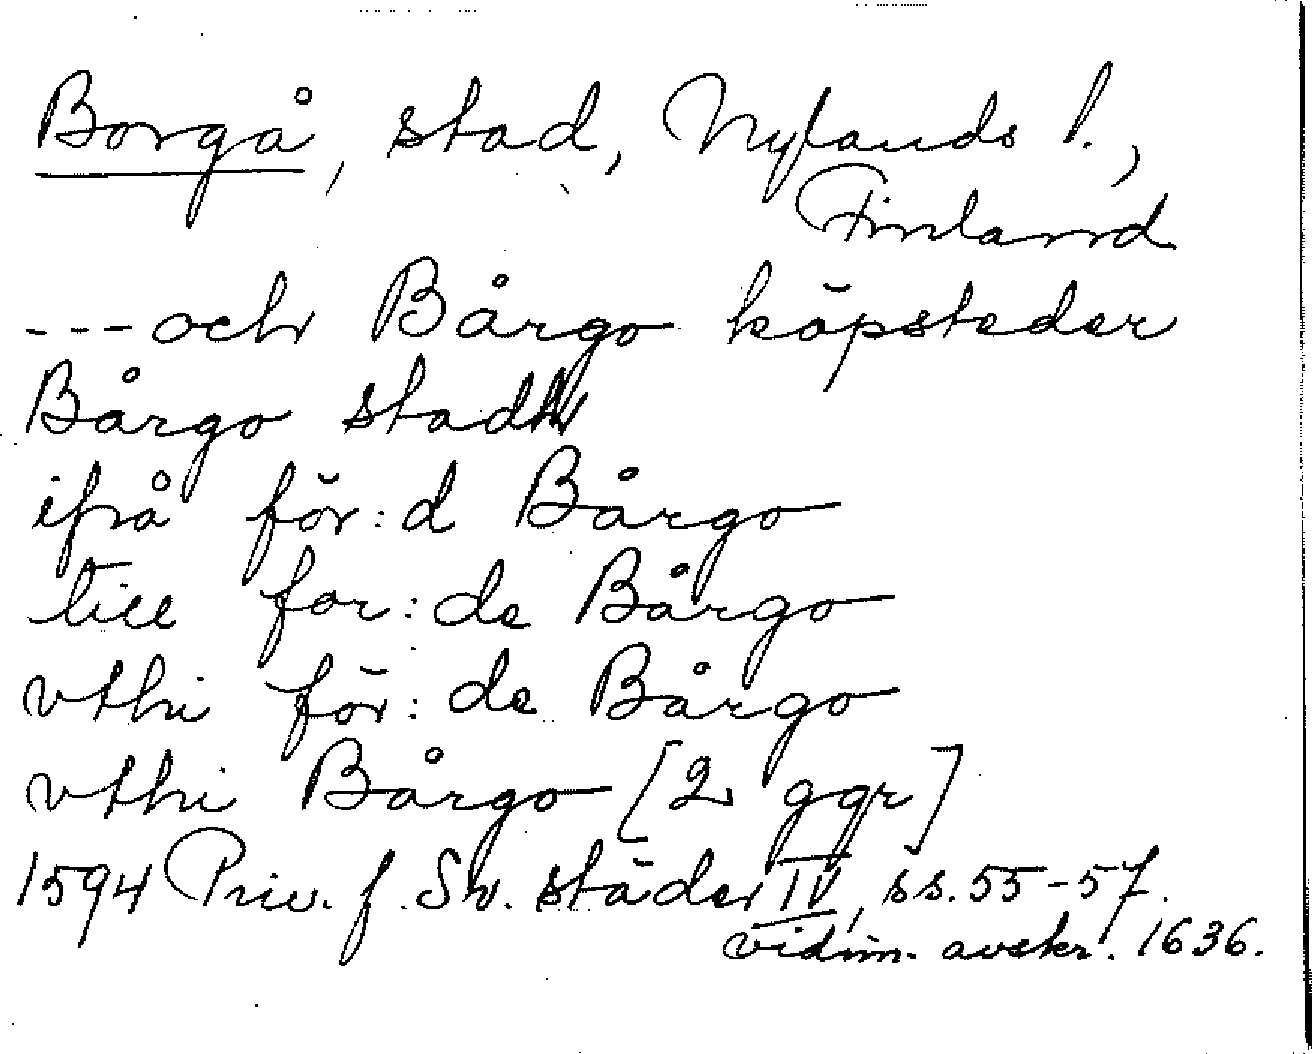 Borgå, stad, Nylands l.,
Finland
--- och Bårgo köpsteder
Bårgo stadh
ifrå för:d Bårgo
till for:de Bårgo
vthi för:de Bårgo
vthi Bårgo [2 ggr]
1594 Priv. f. Sv. städer IV, ss. 55-57.
vidim. avskr. 1636.